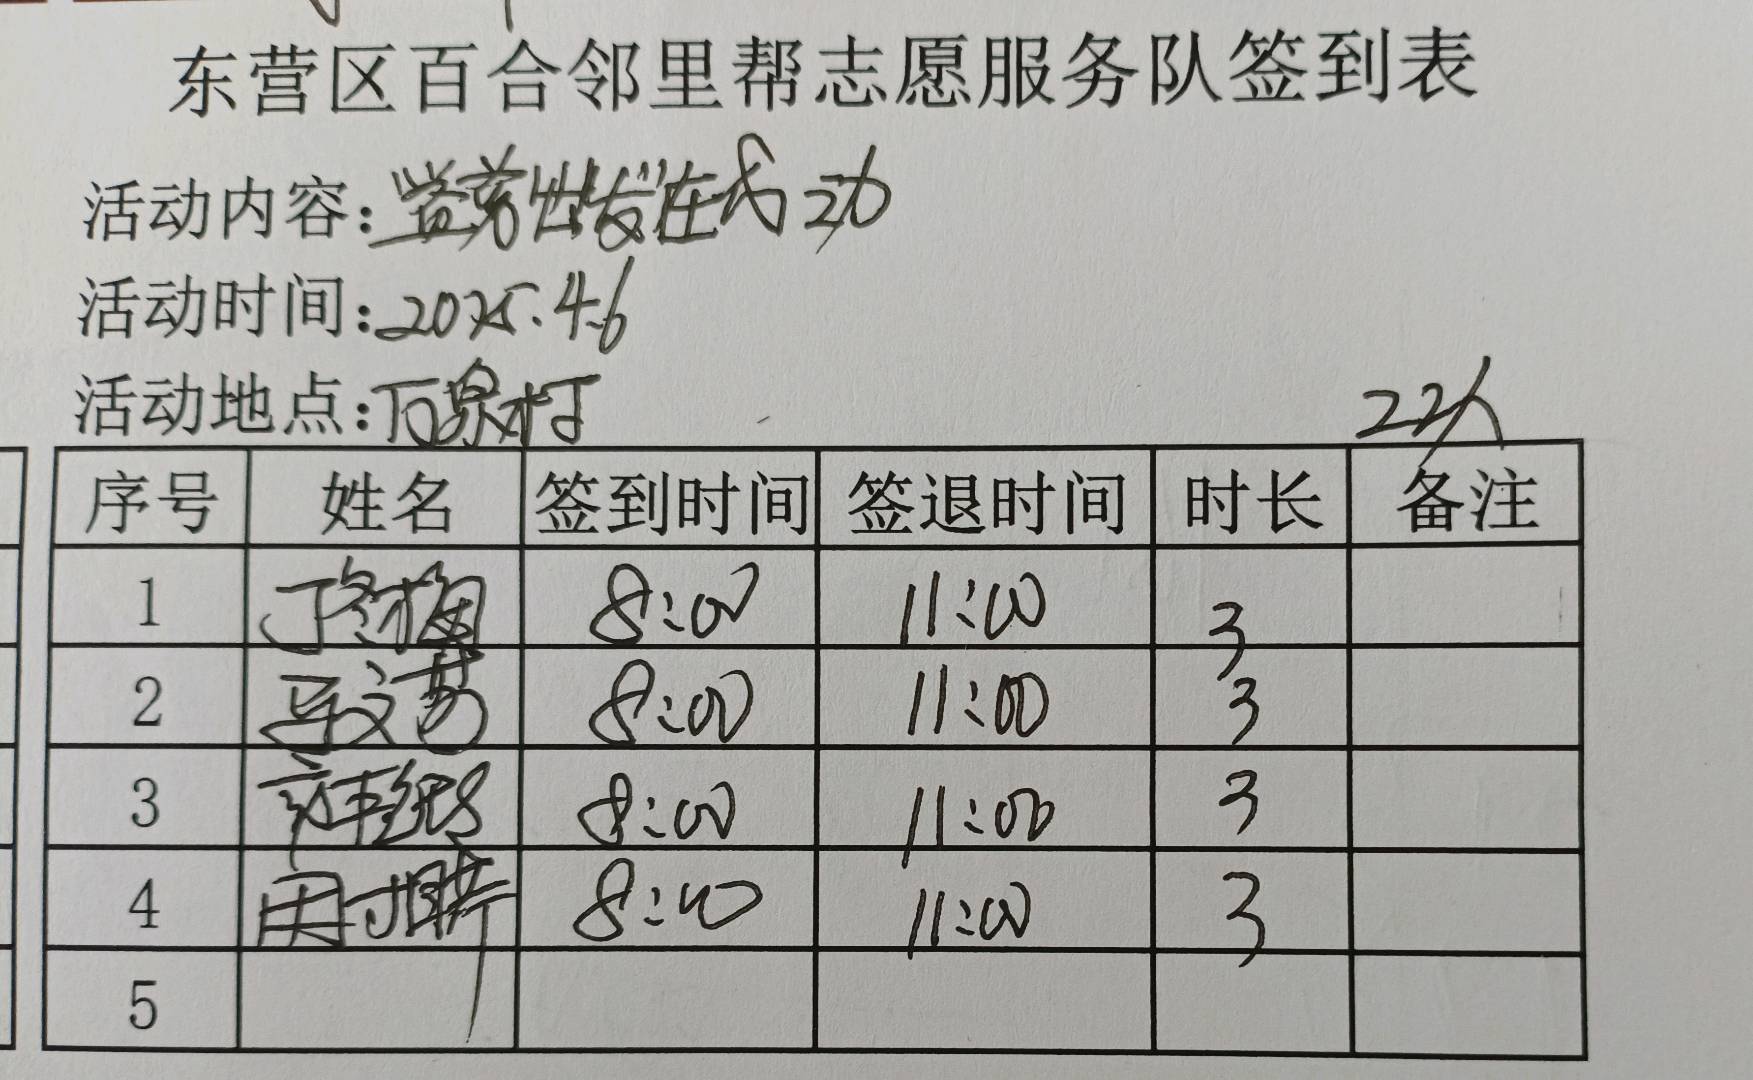 东营区百合邻里帮志愿服务队签到表
活动内容：益劳出发在行动
活动时间：2025.4.6
活动地点：万泉村
22人
序号 姓名 签到时间 签退时间 时长 备注
1 丁冬梅 8:00 11:00 3
2 马文芳 8:00 11:00 3
3 8:00 11:00 3
4 8:00 11:00 3
5